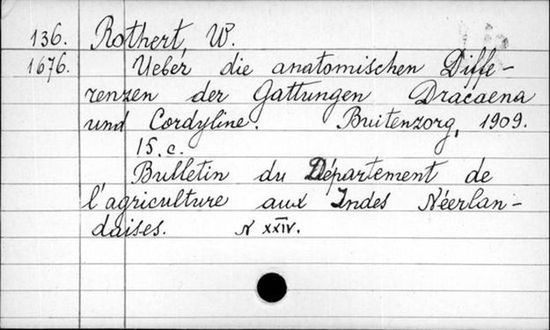 136. Rothert, W.
1676. Ueber die anatomischen Diffe-
renzen der Gattungen Dracaena
und Cordyline. Buitenzorg, 1909.
15. c.
Bulletin du Département de
l'agriculture aux Indes Néerlan-
daises. N XXIV.